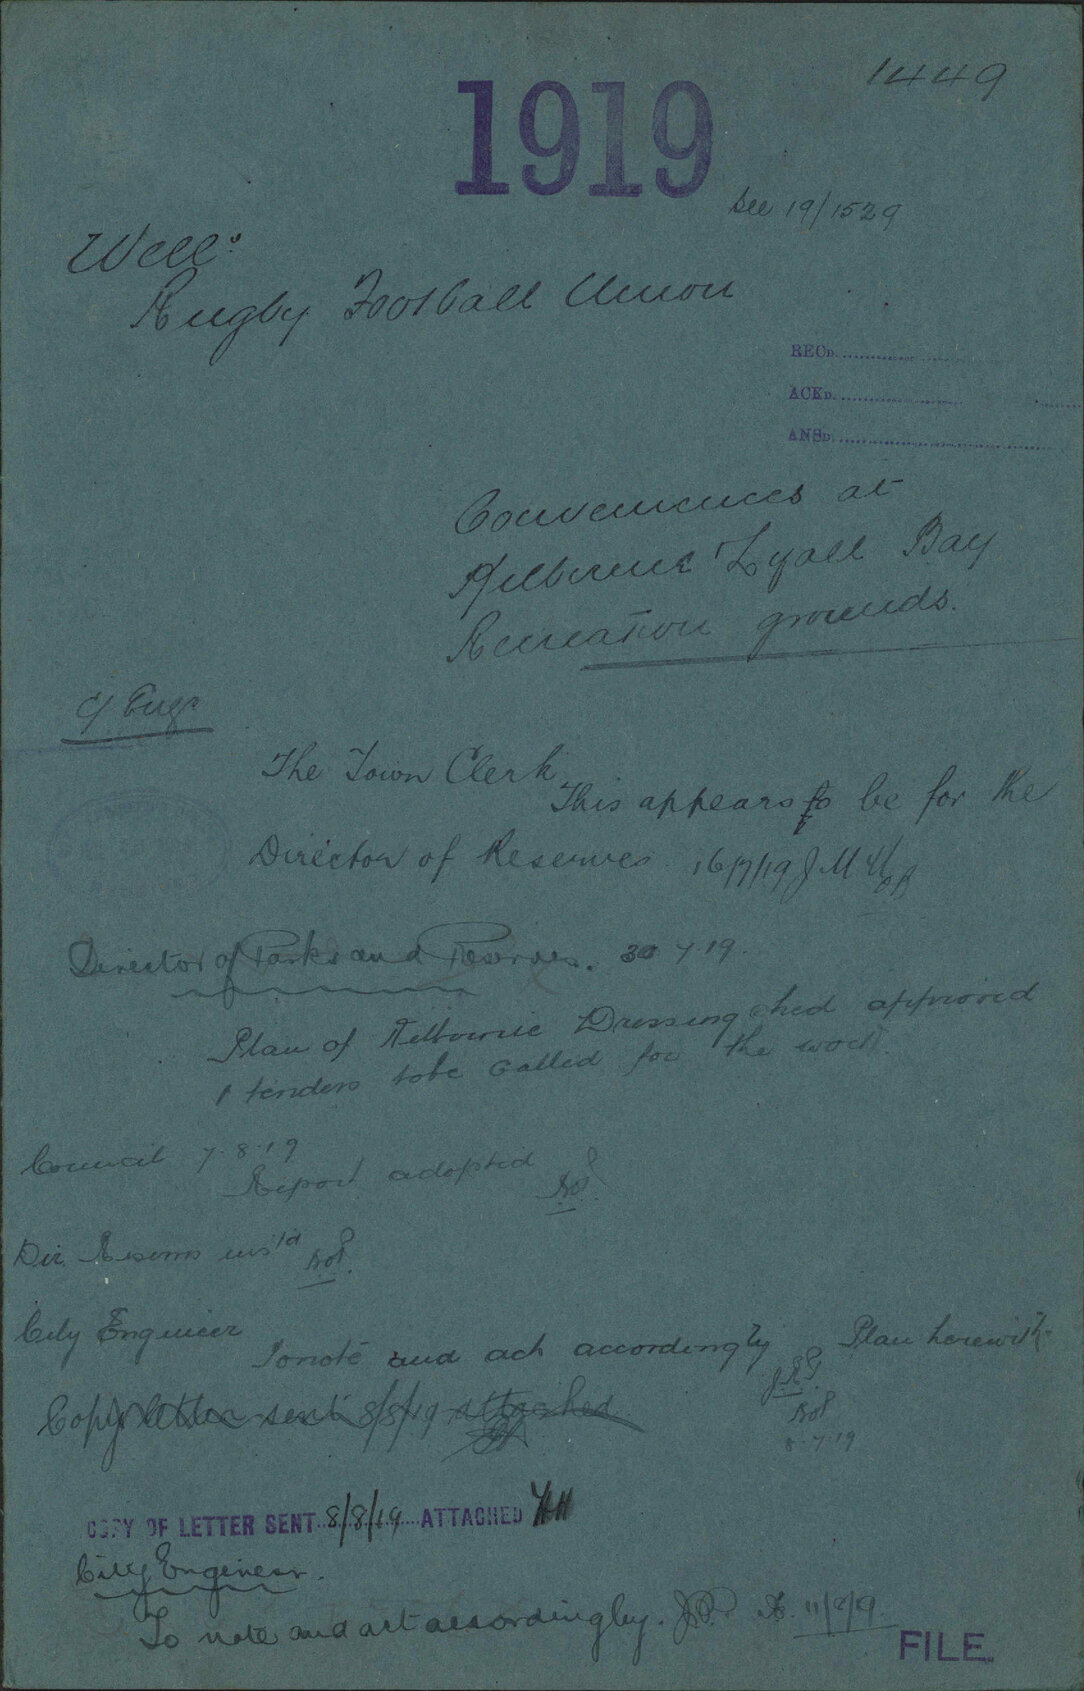 1449
1919
See 19/1529
Well:
Rugby Football Union
RECD.
ACKD.
ANSD.
Conveniences at
Kilbirnie Lyall Bay
Recreation grounds.
C/ Engr
The Town Clerk
This appears to be for the
Director of Reserves 16/7/19 J M
Director of Parks and Reserves. 30 7.19.
Plan of Kilbirnie Dressing shed approved
& tenders to be called for the work.
Council 7.8.19
Report adopted
Dir. Reserves
City Engineer
To note and act accordingly Plan herewith
Copy letter sent 8/8/19 attached
8.7.19
COPY OF LETTER SENT 8/8/19 ATTACHED
City Engineer.
To note and act accordingly.
FILE.